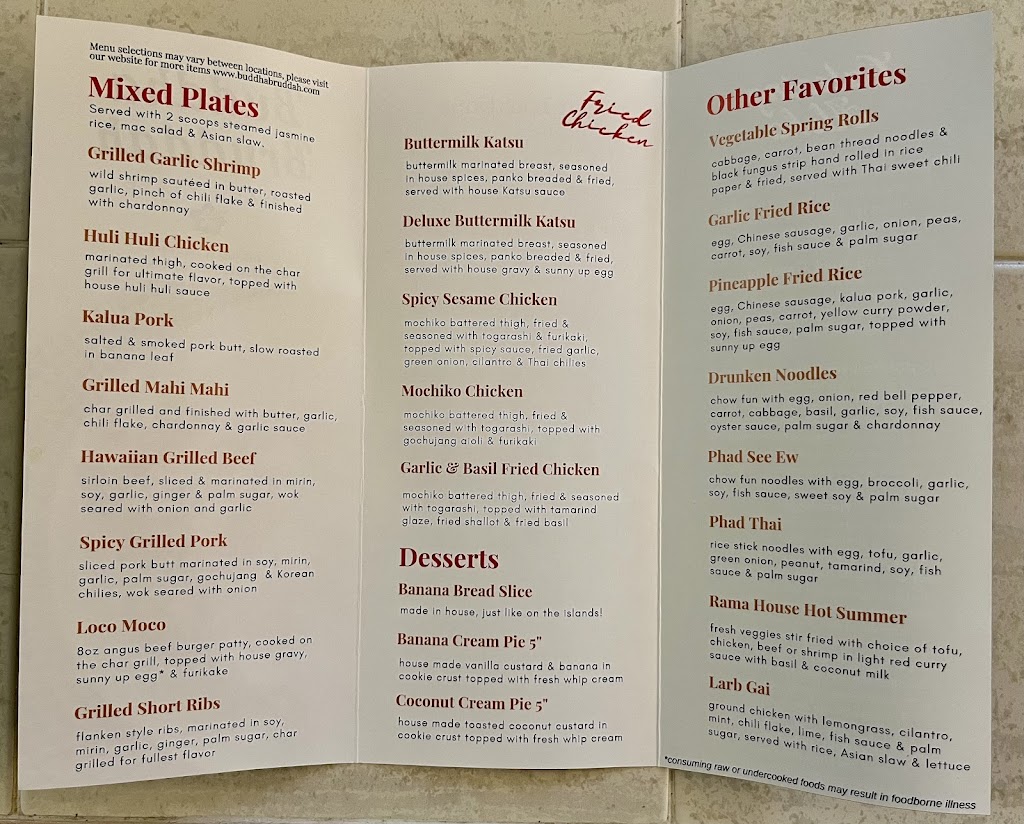 Menu selections may vary between locations, please visit
our website for more items www.buddhabruddah.com
Mixed Plates
Served with 2 scoops steamed jasmine
rice, mac salad & Asian slaw.
Grilled Garlic Shrimp
wild shrimp sautéed in butter, roasted
garlic, pinch of chili flake & finished
with chardonnay
Huli Huli Chicken
marinated thigh, cooked on the char
grill for ultimate flavor, topped with
house huli huli sauce
Kalua Pork
salted & smoked pork butt, slow roasted
in banana leaf
Grilled Mahi Mahi
char grilled and finished with butter, garlic,
chili flake, chardonnay & garlic sauce
Hawaiian Grilled Beef
sirloin beef, sliced & marinated in mirin,
soy, garlic, ginger & palm sugar, wok
seared with onion and garlic
Spicy Grilled Pork
sliced pork butt marinated in soy, mirin,
garlic, palm sugar, gochujang & Korean
chilies, wok seared with onion
Loco Moco
8oz angus beef burger patty, cooked on
the char grill, topped with house gravy,
sunny up egg* & furikake
Grilled Short Ribs
flanken style ribs, marinated in soy,
mirin, garlic, ginger, palm sugar, char
grilled for fullest flavor
Fried
Chicken
Buttermilk Katsu
buttermilk marinated breast, seasoned
in house spices, panko breaded & fried,
served with house Katsu sauce
Deluxe Buttermilk Katsu
buttermilk marinated breast, seasoned
in house spices, panko breaded & fried,
served with house gravy & sunny up egg
Spicy Sesame Chicken
mochiko battered thigh, fried &
seasoned with togarashi & furikaki,
topped with spicy sauce, fried garlic,
green onion, cilantro & Thai chilies
Mochiko Chicken
mochiko battered thigh, fried &
seasoned with togarashi, topped with
gochujang aioli & furikaki
Garlic & Basil Fried Chicken
mochiko battered thigh, fried & seasoned
with togarashi, topped with tamarind
glaze, fried shallot & fried basil
Desserts
Banana Bread Slice
made in house, just like on the islands!
Banana Cream Pie 5"
house made vanilla custard & banana in
cookie crust topped with fresh whip cream
Coconut Cream Pie 5"
house made toasted coconut custard in
cookie crust topped with fresh whip cream
Other Favorites
Vegetable Spring Rolls
cabbage, carrot, bean thread noodles &
black fungus strip hand rolled in rice
paper & fried, served with Thai sweet chili
Garlic Fried Rice
egg, Chinese sausage, garlic, onion, peas,
carrot, soy, fish sauce & palm sugar
Pineapple Fried Rice
egg, Chinese sausage, kalua pork, garlic,
onion, peas, carrot, yellow curry powder,
soy, fish sauce, palm sugar, topped with
sunny up egg
Drunken Noodles
chow fun with egg, onion, red bell pepper,
carrot, cabbage, basil, garlic, soy, fish sauce,
oyster sauce, palm sugar & chardonnay
Phad See Ew
chow fun noodles with egg, broccoli, garlic,
soy, fish sauce, sweet soy & palm sugar
Phad Thai
rice stick noodles with egg, tofu, garlic,
green onion, peanut, tamarind, soy, fish
sauce & palm sugar
Rama House Hot Summer
fresh veggies stir fried with choice of tofu,
chicken, beef or shrimp in light red curry
sauce with basil & coconut milk
Larb Gai
ground chicken with lemongrass, cilantro,
mint, chili flake, lime, fish sauce & palm
sugar, served with rice, Asian slaw & lettuce
*consuming raw or undercooked foods may result in foodborne illness